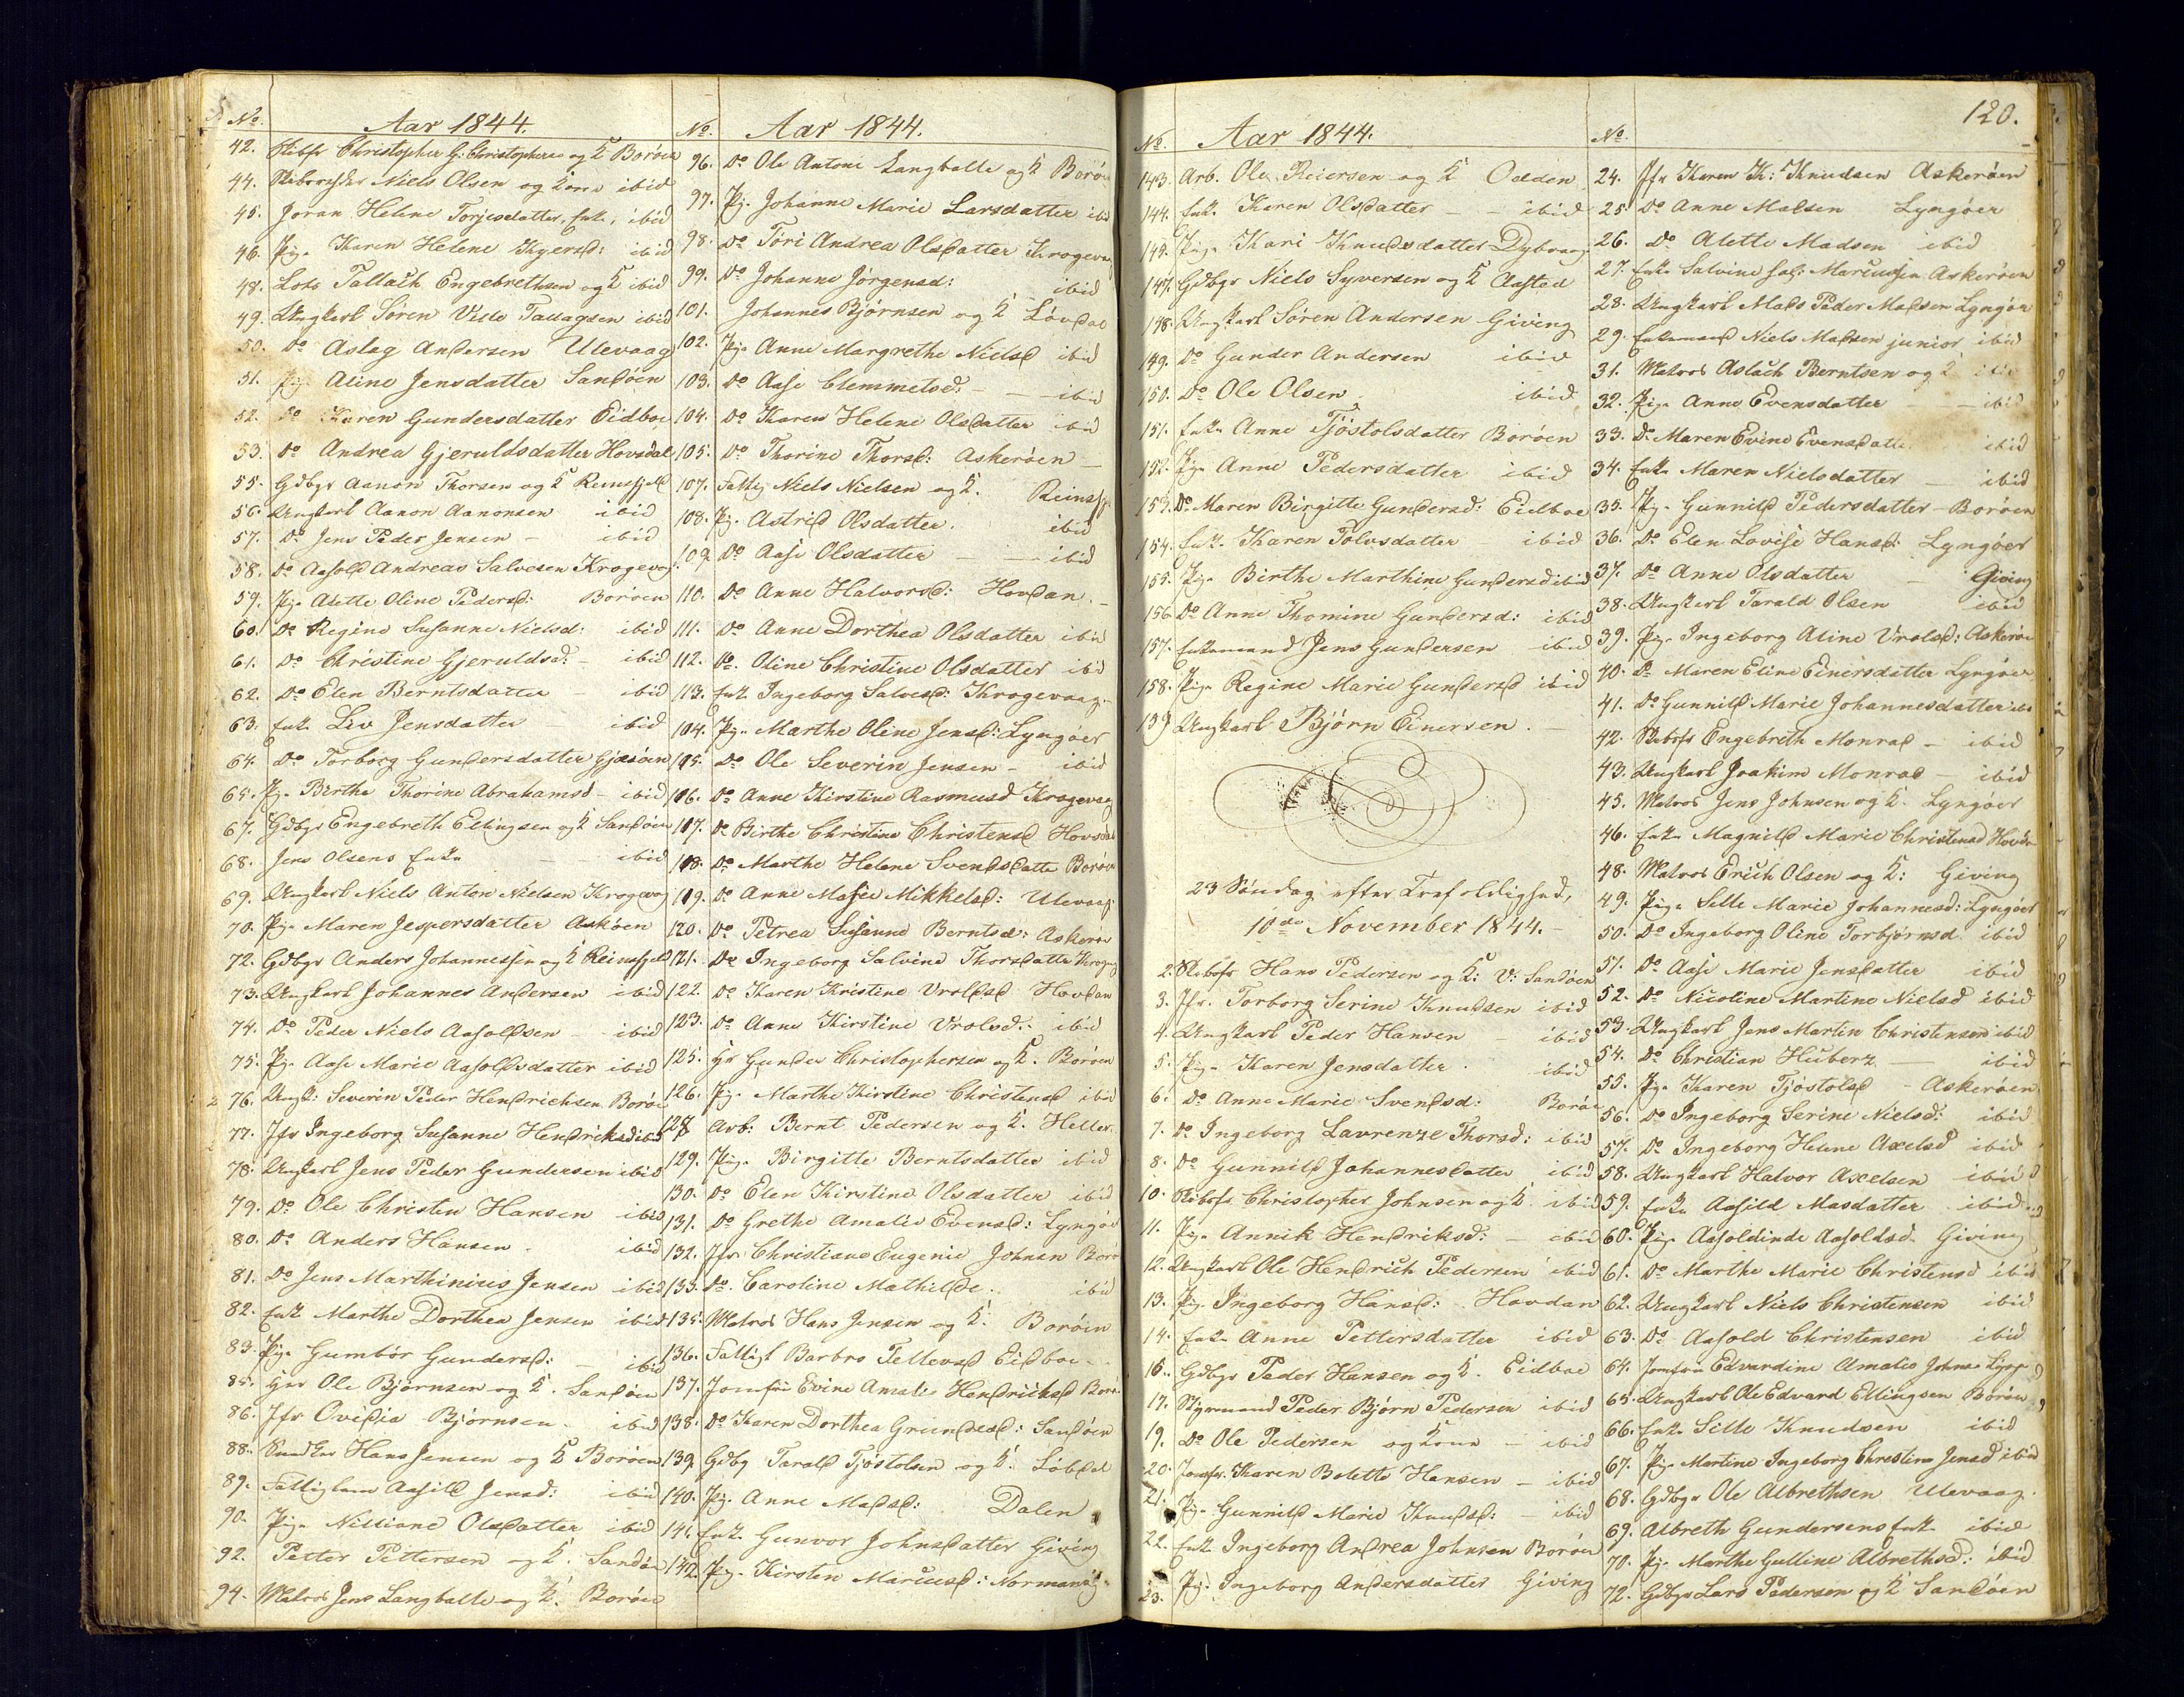 No. Aar 1844.
42. Skibsfr Christopher G. Christophersen og K Borøen
44. Niels Olsen og Kone ibid
45. Joran Helene Torjesdatter, Enke, ibid
46. Pig. Karen Helene ibid
48. Lods Tallach Engebrethsen og K ibid
49. Ungkarl Søren Ville Tallagsen ibid
50. Do Aslag Andersen Ulevaag
51. Pig. Aline Jensdatter Sandøen
52. Do Karen Gundersdatter Eidboe
53. Do Andrea Gjeruldsdatter Hovsdal
55. Gdbgr Aanon Thorsen og K Reinsfjell
56. Ungkarl Aanon Aanonsen ibid
57. Do Jens Peder Jensen - ibid
58. Do Aasold Andreas Salvesen Krogevog
59. Pig. Alette Oline Pedersd: Borøen
60. Do Regine Susanne Nielsd: ibid
61. Do Christine Gjeruldsd: - ibid
62. Do Elen Berntsdatter - ibid
63. Enk. Liv Jensdatter - ibid
64. Do Torborg Gundersdatter
65. Pig. Birthe Thorine Abrahamsd - ibid
67. Gdbgr Engebreth Ellingsen og K Sandøen
68. Jens Olsens Enke - ibid
69. Ungkarl Niels Anton Nielsen Krogevog
70. Pige Maren Jespersdatter Askøen
72. Gdbgr Anders Johannessen og K Reinsfjeld
73. Ungkarl Johannes Andersen ibid
74. Do Peder Niels Aasoldsen - ibid
75. Pig. Aase Marie Aasoldsdatter ibid
76. Ungk: Severin Peder Hendrichsen Borøe
77. Jfr Ingeborg Susanne Hendriksd ibid
78. Ungkarl Jens Peder Gundersen ibid
79. Do Ole Christen Hansen ibid
80. Do Anders Hansen. ibid
81. Do Jens Marthinius Jensen ibid
82. Enk Marthe Dorthea Jensen ibid
83. Pige Gumbør Gundersd: - ibid
85. Ole Bjørnsen og K. Sandøen
86. Jfr Ovidia Bjørnsen - ibid
88. Hans Jensen og K Borøen
89. Fattiglem Aasild Jensd: ibid
90. Pige Nilliane Olsdatter ibid
92. Petter Pettersen og K. Sandøe
94. Matros Jens Langballe og K. Borøen
No. Aar 1844.
96. Do Ole Antoni Langballe og K Borø
97. Pig. Johanne Marie Larsdatter ibid
98. Do Tori Andrea Olsdatter Krogevaa
99. Do Johanne Jørgensd: ibid
101. Johannes Bjørnsen og K Løvdal
102. Pige Anne Margrethe Nielsd ibid
103. Do Aase Clemmetsd: - - ibid
104. Do Karen Helene Olsdatter ibid
105. Do Thorine Thorsd: Askerøen -
107. Fattig Niels Nielsen og K. Reinsfj
108. Pig. Astrid Olsdatter. ibid
109. Do Aase Olsdatter - - ibid
110. Do Anne Halvorsd: Hovdan. -
111. Do Anne Dorthea Olsdatter ibid
112. Do. Oline Christine Olsdatter ibid
113. Enk. Ingeborg Salvesd: Krogevaag.
104. Pig. Marthe Oline Jensd: Lyngøer
115. Do Ole Severin Jensen - ibid
116. Do Anne Kirstine Rasmusd Krogevaag
117. Do Birthe Christine Christensd Hovsdal
118. Do Marthe Helene Svendsdatte Borøe
119. Do Anne Marie Mikkelsd: Ulevaag
120. Do Petrea Susanne Berntsd: Askerøe
121. Do Ingeborg Salvine Thorsdatte Krogvg
122. Do Karen Kristine Vrolsd Hovdan
123. Do Anne Kirstine Vrolsd. ibid
125. Gunder Christophersen og K. Borøen
126. Pig. Marthe Kirstine Christensd ibid
128 Arb. Bernt Pedersen og K. Helle
129. Pig. Birgitte Berntsdatter ibid
130. Do Elen Kirstine Olsdatter ibid
131. Do Grethe Amalie Evensd: Lyngøe
132. Jfr Christiane Eugenie Johnsen Borø
133. Do. Caroline Mathilde. ibid
135. Matros Hans Jensen og K. Borøen
136. Fattigl Barbro Tellevsd Eidboe -
137. Jomfru Evine Amalie Hendrichsd Borø
138. Do Karen Dorthea : Sandøen
139. Gdbg Tarald Tjøstolsen og K. Løbdal
140. Pig. Anne Madsd: Dalen
141. Enk. Gunvor Johnsdatter Giving
142. Pig. Kirsten Marcusd:
No. Aar 1844.
143. Arb. Ole Reiersen og K Odden
144. Enk. Karen Olsdatter - - ibid
145. Pig. Kari Knudsdatter Dybvaag
147. Gdbgr Niels Syversen og K Aasted
148. Ungkarl Søren Andersen Giving
149. Do Gunder Andersen ibid
150. Do Ole Olsen. ibid
151. Enke Anne Tjøstolsdatter Borøen
152. Pig. Anne Pedersdatter ibid
153. Do Maren Birgitte Gundersd: Eidboe
154. Enk. Karen Tolvsdatter - ibid
155. Pig. Birthe Marthine Gundersd ibid
156. Do Anne Thomine Gundersd: ibid
157. Enkemand Jens Gundersen ibid
158. Pige Regine Marie Gundersd ibid
159 Ungkarl Bjørn Einersen. -
23 Søndag efter Trefoldighed,
10de November 1844. -
2. Skibsfr Hans Pedersen og K: V: Sandøen
3. Jfr. Torborg Serine Knudsen ibid
4. Ungkarl Peder Hansen - ibid
5. Pig. Karen Jensdatter. ibid
6. Do Anne Marie Svendsd: Borøe
7. Do Ingeborg Laurenze Thorsd: ibid
8. Do Gunnild Johannesdatter ibid
10. Skibsfr Christopher Johnsen og K. ibid
11. Pig. Annik Hendriksd: - ibid
12. Ungkarl Ole Hendrich Pedersen ibid
13. Pig. Ingeborg Hansd: Hovdan
14. Enke Anne Pettersdatter ibid
16. Gdbgr Peder Hansen og K. Eidboe
17. Styrmand Peder Bjørn Pedersen ibid
19. Do Ole Pedersen og Kone - ibid
20. Jomfr. Karen Bolette Hansen - ibid
21. Pige Gunnild Marie Knudsd: - ibid
22. Enk. Ingeborg Andrea Johnsen Borøen
23. Pig. Ingeborg Andersdatter Giving
120.
No
24. Jfr Karen K: Knudsen Askerøen
25. Do Anne Madsen Lyngøer
26. Do Alette Madsen ibid
27. Enke Salvine sal: Marcussen Askerøen
28. Ungkarl Mads Peder Madsen Lyngøer
29. Enkemand Niels Madsen junior ibid
31. Matros Aslach Berntsen og K ibid
32. Pige Anne Evensdatter - - ibid
33. Do Maren Evine Evensdatte ibid
34. Enke Maren Nielsdatter - ibid
35. Pig. Gunnild Pedersdatter - Borøen
36. Do Elen Lovise Hansd: Lyngøer
37. Do Anne Olsdatter - Giving
38. Ungkarl Tarald Olsen ibid
39. Pig. Ingeborg Aline Vrolsd: Askerøe
40. Do Maren Eline Einersdatter Lyngøer
41. Do Gunnild Marie Johannesdatter ibid
42. Skibsfr Engebreth Monrad - ibid
43. Ungkarl Joakim Monrad - ibid
45. Matros Jens Johnsen og K. Lyngøer
46. Enke Magnild Marie Christensd Hovda
48. Matros Erich Olsen og K: Giving
49. Pige Sille Marie Johannesd: Lyngøer
50. Do Ingeborg Oline Torbjørnsd. ibid
51. Do Aase Marie Jensdatter ibid
52. Do Nicoline Martine Nielsd ibid
53. Ungkarl Jens Martin Christensen ibid
54. Do Christian Huberz - ibid
55. Pige Karen Tjøstolsd - Askerøen
56. Do Ingeborg Serine Nielsd: ibid
57. Do Ingeborg Helene Axelsd ibid
58. Ungkarl Halvor Axelsen ibid
59. Enke Aasild Masdatter ibid
60. Pige Aasoldinde Aasoldsd. Giving
61. Do Marthe Marie Christensd ibid
62. Ungkarl Niels Christensen ibid
63. Do Aasold Christensen ibid
64. Jomfru Edvardine Amalie Johns
65. Ungkarl Ole Edvard Ellingsen Borøen
66. Enke Sille Knudsen ibid
67. Pige Martine Ingeborg Christine Jensd ibid
68. Gdbgr Ole Albrethsen Ulevaag.
69. Albreth Gundersens Enk. ibid
70. Pig. Marthe Gulline Albrethsd: ibid
72. Gdbgr Lars Pedersen og K Sandøen